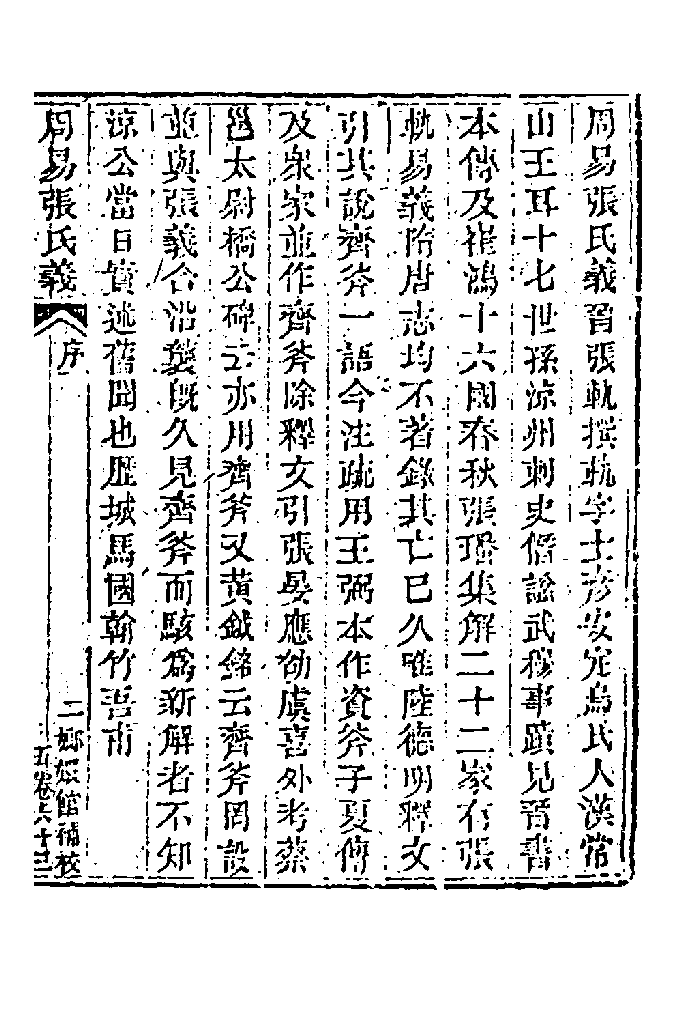 周易張氏義晉張軌撰軌字士彥安定烏氏人漢常
山王耳十七世孫涼州刺史僭諡武穆事蹟見晉書
本傳及崔鴻十六國春秋張璠集解二十二家有張
軌易義隋唐志均不著錄其亡已久唯陸德明釋文
引其說齊斧一語今注疏用王弼本作資斧子夏傳
及眾家並作齊斧除釋文引張晏應劭虞喜外考蔡
邕太尉橋公碑云亦用齊斧又黃鉞銘云齊斧罔設
並與張義合沿襲旣久見齊斧而駭爲新解者不知
涼公當日實述舊聞也歷城馬國翰竹吾甫
周易張氏義
序
二
嫏嬛館補校